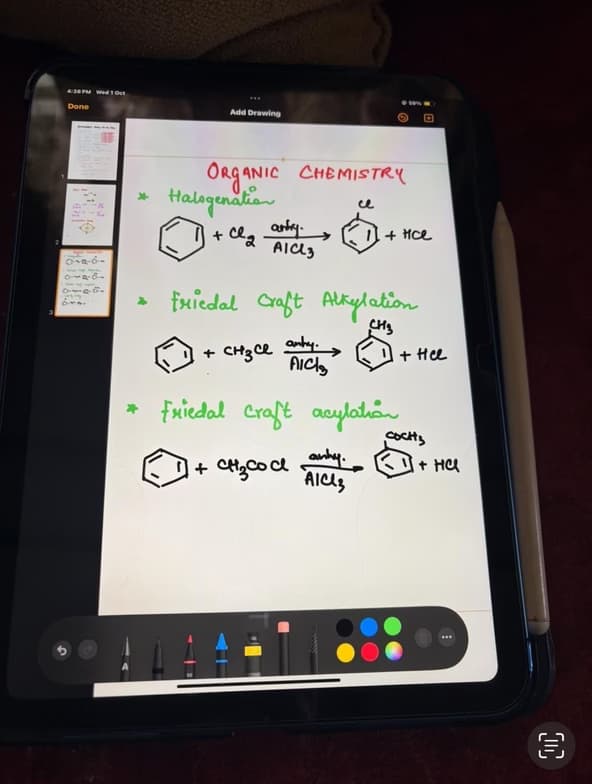 4:38 PM Wed 1 Oct
59%
Done
Add Drawing
ORGANIC CHEMISTRY
* Halogenation
+ Cl2 anhy. AlCl3 Cl + HCl
* Friedal Craft Alkylation
+ CH3Cl anhy. AlCl3 CH3 + HCl
* Friedal Craft acylation
+ CH3COCl anhy. AlCl3 COCH3 + HCl